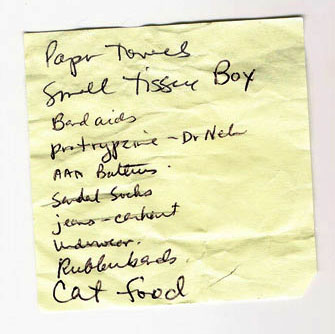 Paper Towels
Small Tissue Box
Band aids
- Dr
AAA Batteries.
Sandal Socks
jeans - carhart
Underwear.
Rubberbands.
Cat food